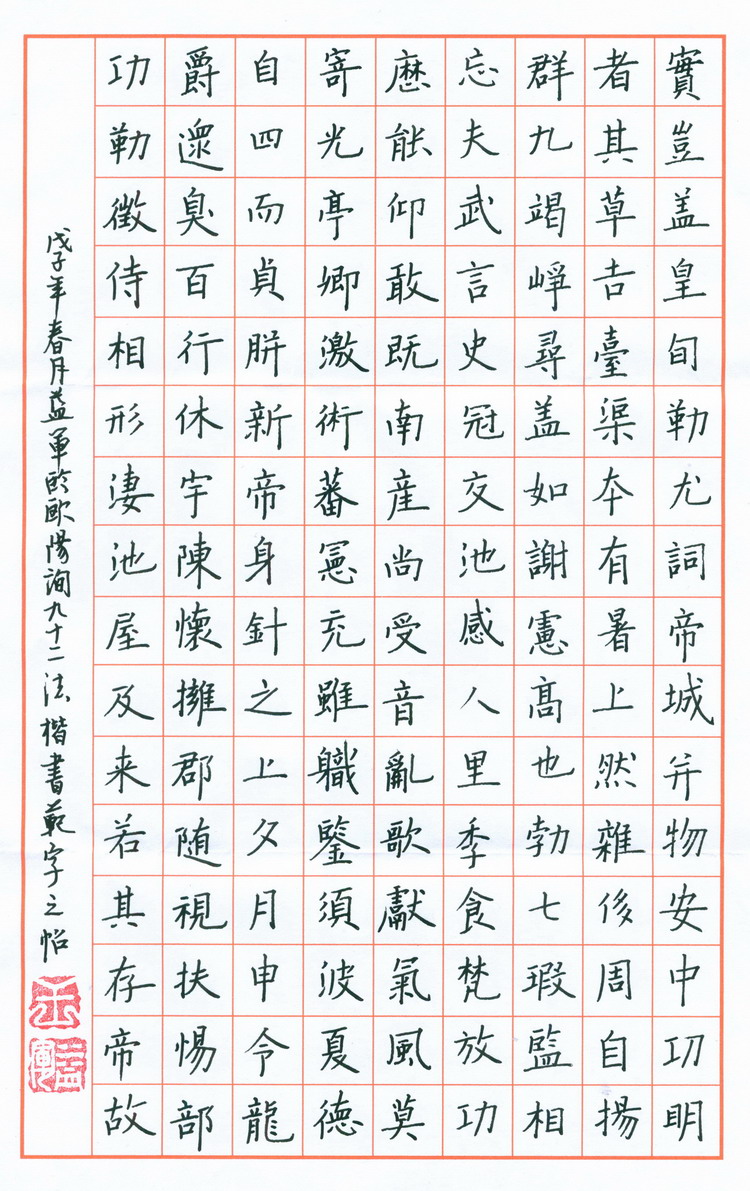 實豈盖皇旬勒尤詞帝城并物安中功明
者其草吉臺渠本有暑上然雜後周自揚
群九竭崢尋盖如謝憲高也勃七瑕監相
忘夫武言史冠交池感人里季食梵放功
歷能仰敢既南産尚受音亂歌獻氣風莫
寄光亭卿激術蕃冕充雖職鑒須波夏德
自四而貞胼新帝身針之上夕月申令龍
爵邈臭百行休宇陳懷擁郡随視扶惕部
功勒徵侍相形淒池屋及来若其存帝故
戊子年春月益軍临歐陽詢九十二法楷書範字之帖